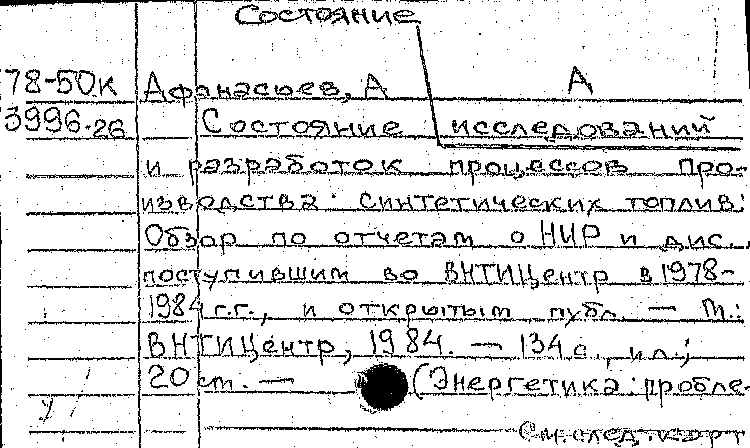 Состояние
78-50к Афанасьев, А А
3996.26 Состояние исследований
и разработок процессов про-
изводства синтетических топлив:
Обзор по отчетам о НИР и дис.,
поступившим во ВНТИЦентр в 1978-
1984 г.г., и открытым публ. — М.:
ВНТИЦентр, 1984. — 134 с., ил.;
20 см. — (Энергетика: пробле-
См. след. карт